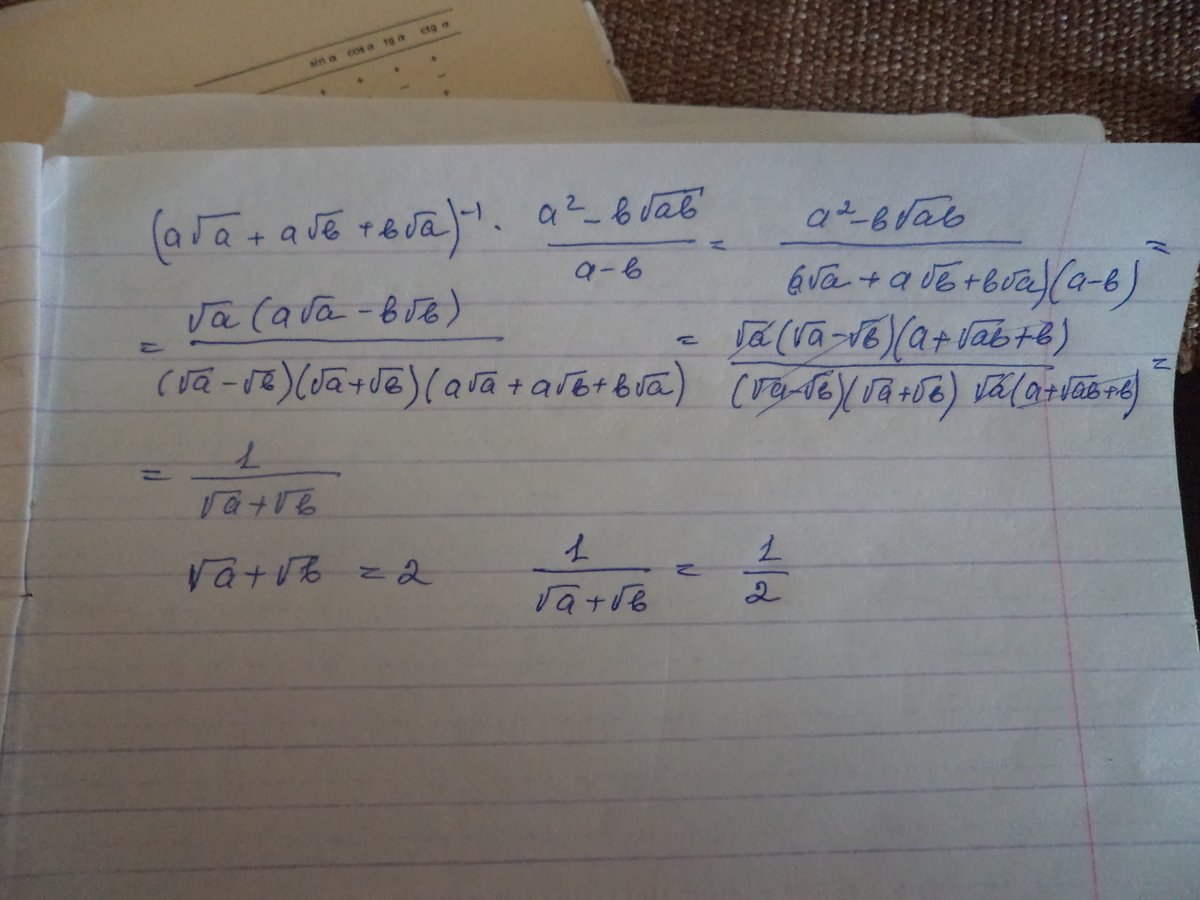 sin α cos α tg α ctg α
+ + + +
− −
+
(a√a + a√b + b√a)⁻¹ · (a² − b√ab)/(a − b) = (a² − b√ab)/(a√a + a√b + b√a)(a − b) =
= √a (a√a − b√b)/(√a − √b)(√a + √b)(a√a + a√b + b√a) = √a (√a − √b)(a + √ab + b)/(√a − √b)(√a + √b) √a (a + √ab + b) =
= 1/(√a + √b)
√a + √b = 2 1/(√a + √b) = 1/2